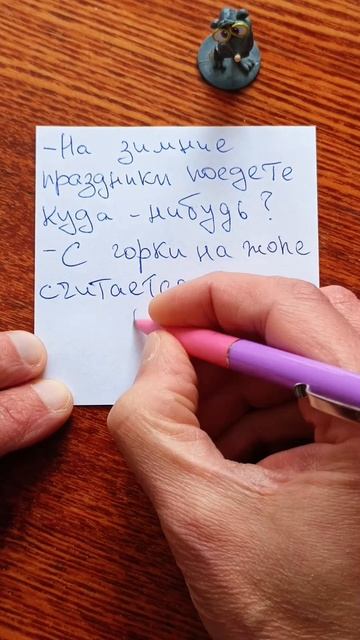 -На зимние
праздники поедете
куда-нибудь?
-С горки на жопе
считается